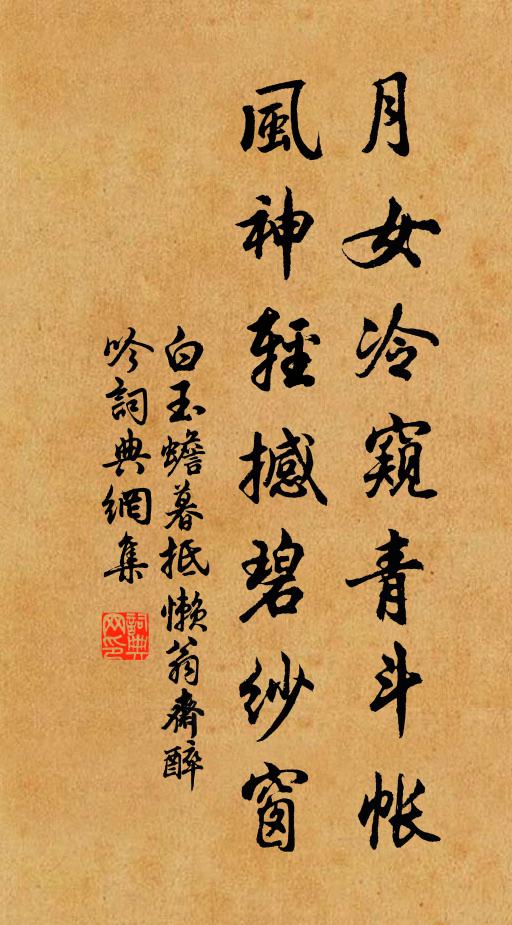 月女冷窺青斗帳
風神輕撼碧紗窗
白玉蟾暮抵懶翁齋醉
吟詞典網集
詞典网印